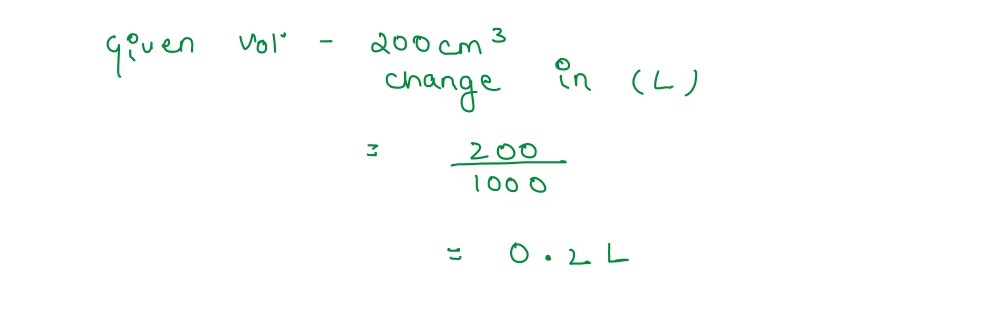 given vol - 200 cm³
change in (L)
= 200
1000
= 0.2 L